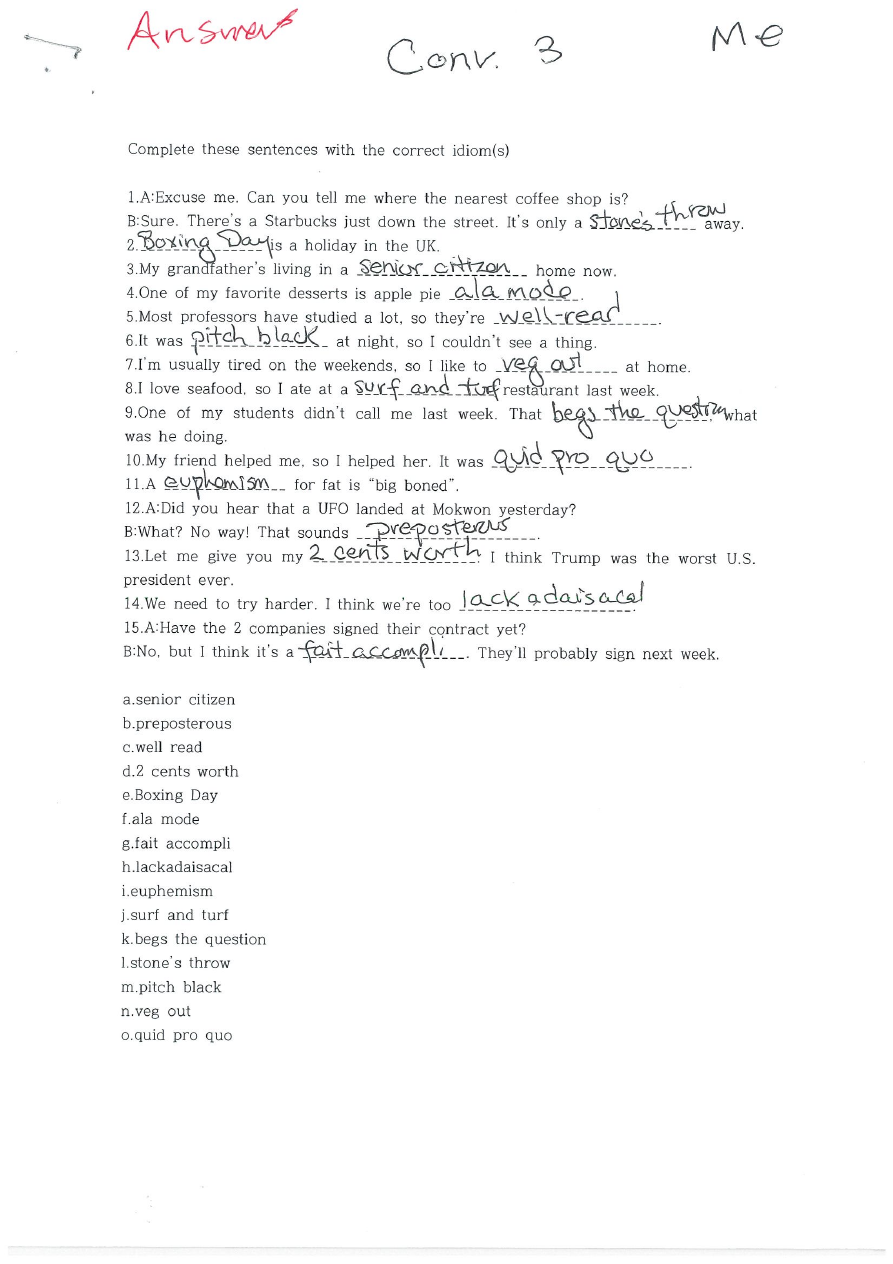 Answers
Conv. 3
Me
Complete these sentences with the correct idiom(s)
1.A:Excuse me. Can you tell me where the nearest coffee shop is?
B:Sure. There's a Starbucks just down the street. It's only a stone's throw away.
2.Boxing Day is a holiday in the UK.
3.My grandfather's living in a senior citizen home now.
4.One of my favorite desserts is apple pie ala mode.
5.Most professors have studied a lot, so they're well-read.
6.It was pitch black at night, so I couldn't see a thing.
7.I'm usually tired on the weekends, so I like to veg out at home.
8.I love seafood, so I ate at a surf and turf restaurant last week.
9.One of my students didn't call me last week. That begs the question, what
was he doing.
10.My friend helped me, so I helped her. It was quid pro quo.
11.A euphemism for fat is "big boned".
12.A:Did you hear that a UFO landed at Mokwon yesterday?
B:What? No way! That sounds preposterous.
13.Let me give you my 2 cents worth. I think Trump was the worst U.S.
president ever.
14.We need to try harder. I think we're too lackadaisacal.
15.A:Have the 2 companies signed their contract yet?
B:No, but I think it's a fait accompli. They'll probably sign next week.
a.senior citizen
b.preposterous
c.well read
d.2 cents worth
e.Boxing Day
f.ala mode
g.fait accompli
h.lackadaisacal
i.euphemism
j.surf and turf
k.begs the question
l.stone's throw
m.pitch black
n.veg out
o.quid pro quo